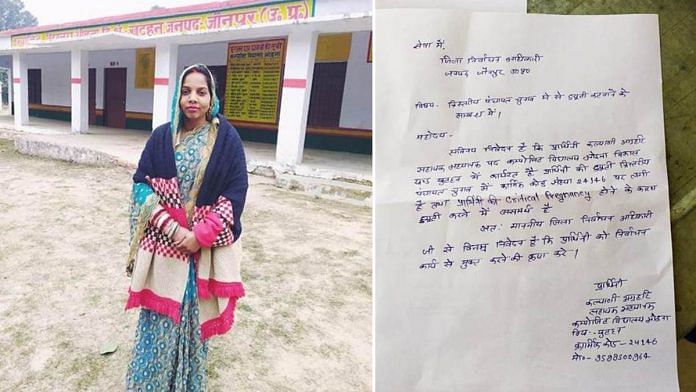 खुटहन जनपद-जौनपुर (उ. प्र.)
सेवा में,
जिला निर्वाचन अधिकारी
जनपद जौनपुर उ०प्र०
विषय- त्रिस्तरीय पंचायत चुनाव में से ड्यूटी कटवाने के
सम्बन्ध में।
महोदय-
सविनय निवेदन है कि प्रार्थिनी कल्याणी अग्रहरि
सहायक अध्यापक पद कम्पोजिट विद्यालय विकास
खण्ड खुटहन में कार्यरत है। प्रार्थिनी की ड्यूटी त्रिस्तरीय
पंचायत चुनाव में कार्मिक कोड संख्या 24146 पर लगी
है तथा प्रार्थिनी की Critical Pregnancy होने के कारण
ड्यूटी करने में असमर्थ है
अतः माननीय जिला निर्वाचन अधिकारी
जी से विनम्र निवेदन है कि प्रार्थिनी को निर्वाचन
कार्य से मुक्त करने की कृपा करें।
प्रार्थिनी
कल्याणी अग्रहरि
सहायक अध्यापक
कम्पोजिट विद्यालय
खुटहन
कार्मिक कोड - 24146
मो०-